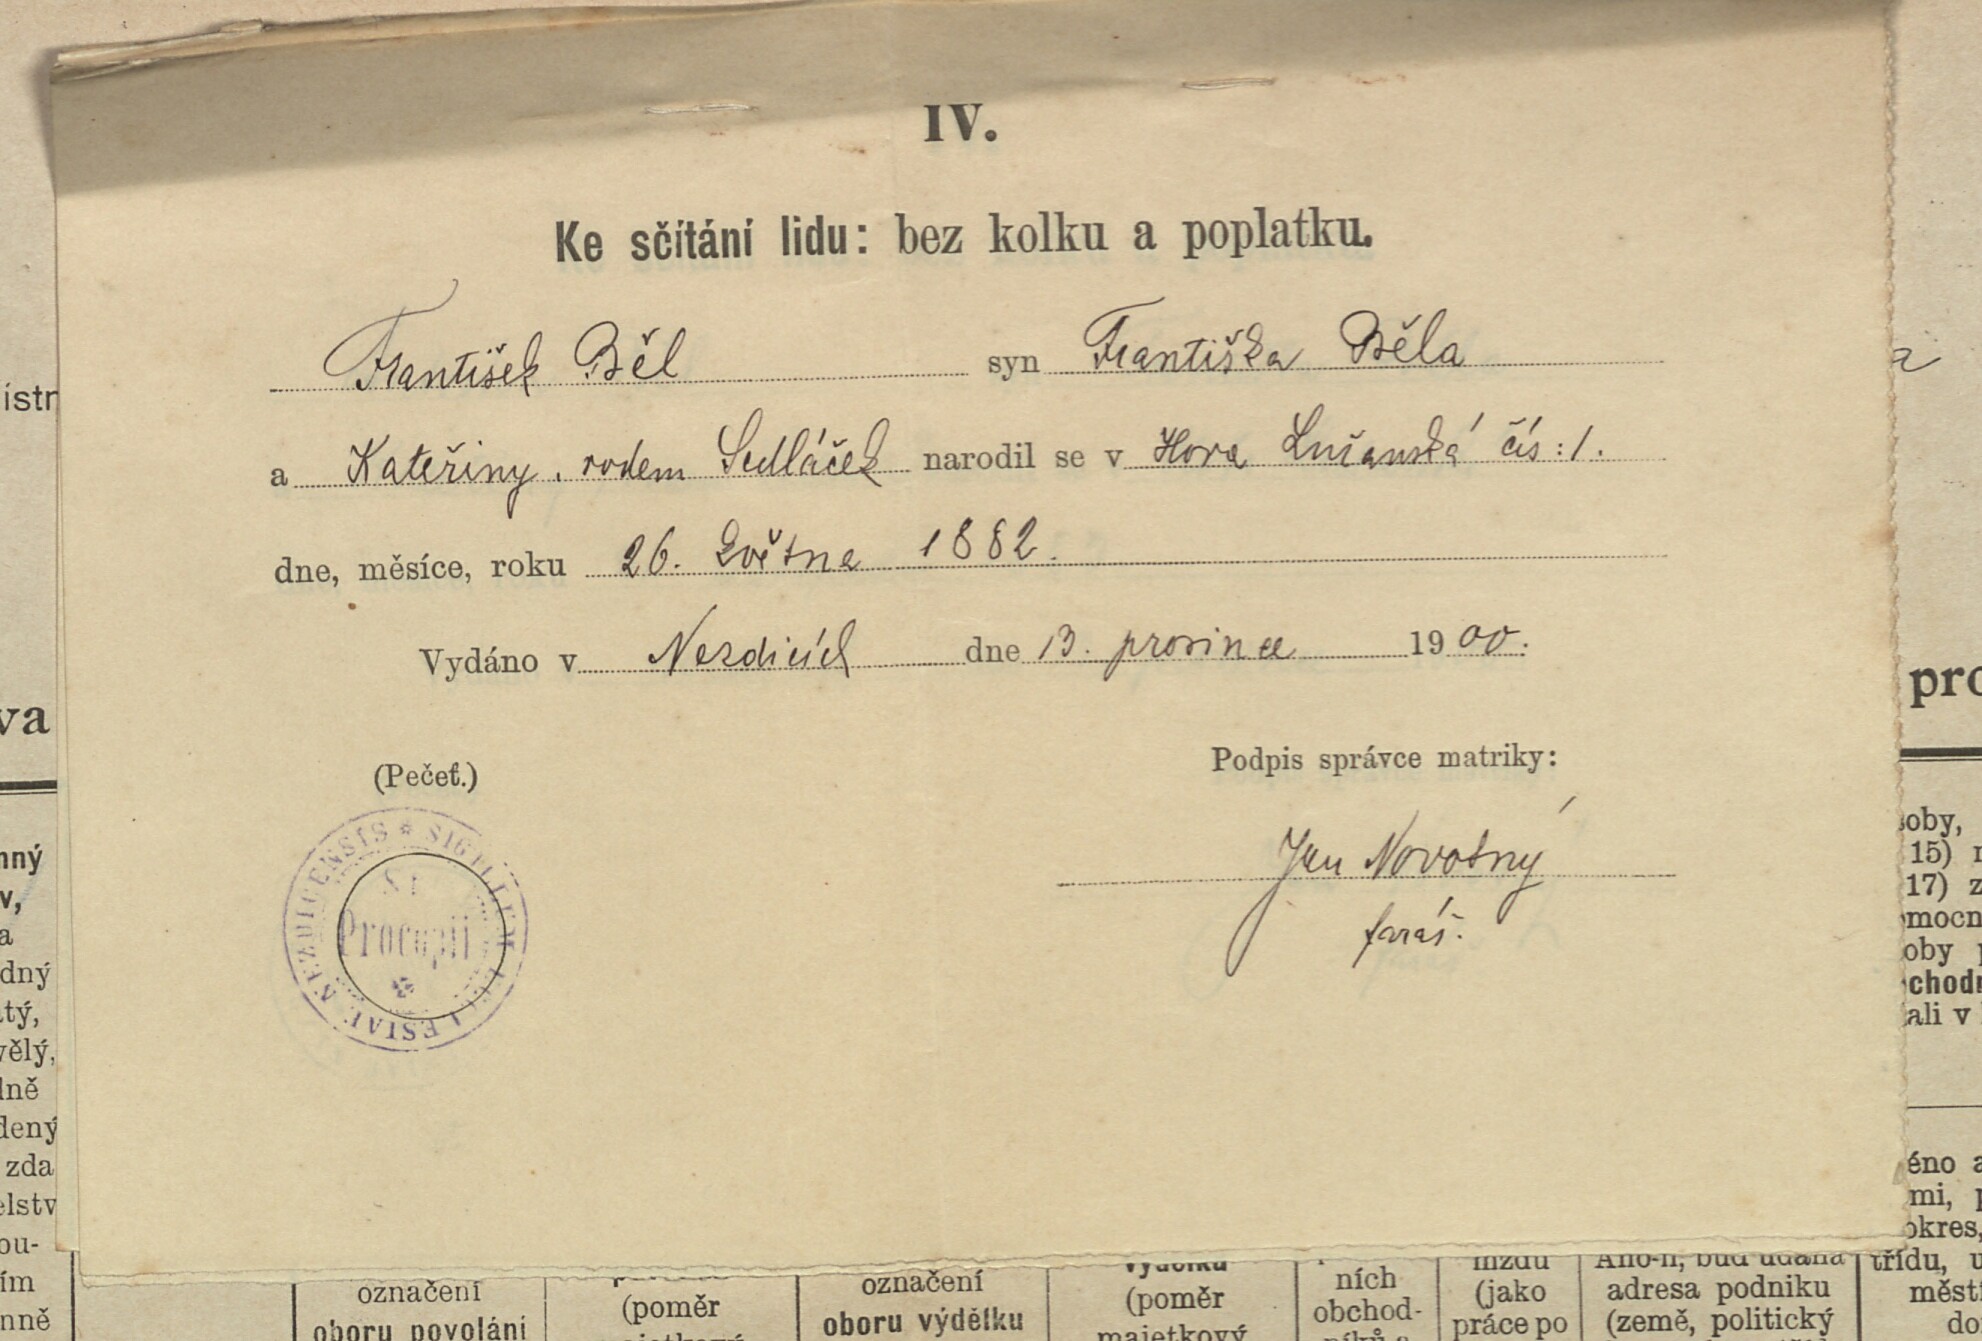 IV.
Ke sčítání lidu: bez kolku a poplatku.
František Běl syn Františka Běla
a Kateřiny, rodem Sedláček narodil se v Hora Lučanská čís: 1.
dne, měsíce, roku 26. Května 1882.
Vydáno v Nezdicích dne 13. prosince 1900.
(Pečeť.)
Podpis správce matriky:
Jan Novotný
farář.
SIGILLUM ECCLESIAE NEZDICENSIS *
St
Procopii
ístr
a
va
pro
nný
v,
a
dný
tý,
vělý,
lně
dený
zda
elstv
ou-
ím
nně
soby,
15)
17) z
omocn
oby p
chodn
ali v
éno a
mi, p
okres,
třídu, u
měst
do
označení
oboru povolání
(poměr
majetkový
označení
oboru výdělku
výdělku
(poměr
majetkový
ních
obchod-
níků a
mzdu
(jako
práce po
Ano-li, buď udána
adresa podniku
(země, politický